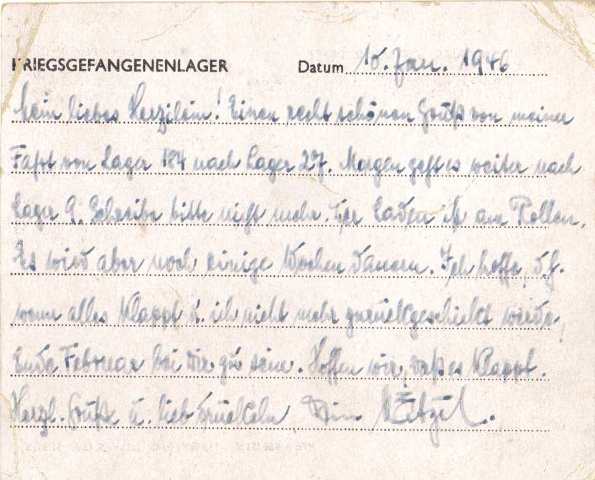 KRIEGSGEFANGENENLAGER Datum 10. Jan. 1946
Mein liebes Herzilein! Einen recht schönen Gruß von meiner
Fahrt von Lager 184 nach Lager 27. Morgen geht es weiter nach
Lager 9. Schreibe bitte nicht mehr. Der Laden ist am Rollen.
Es wird aber noch einige Wochen dauern. Ich hoffe, d.h.
wenn alles klappt u. ich nicht mehr zurückgeschickt werde,
Ende Februar bei Dir zu sein. Hoffen wir, daß es klappt.
Herzl. Gruß u. lieb Dein